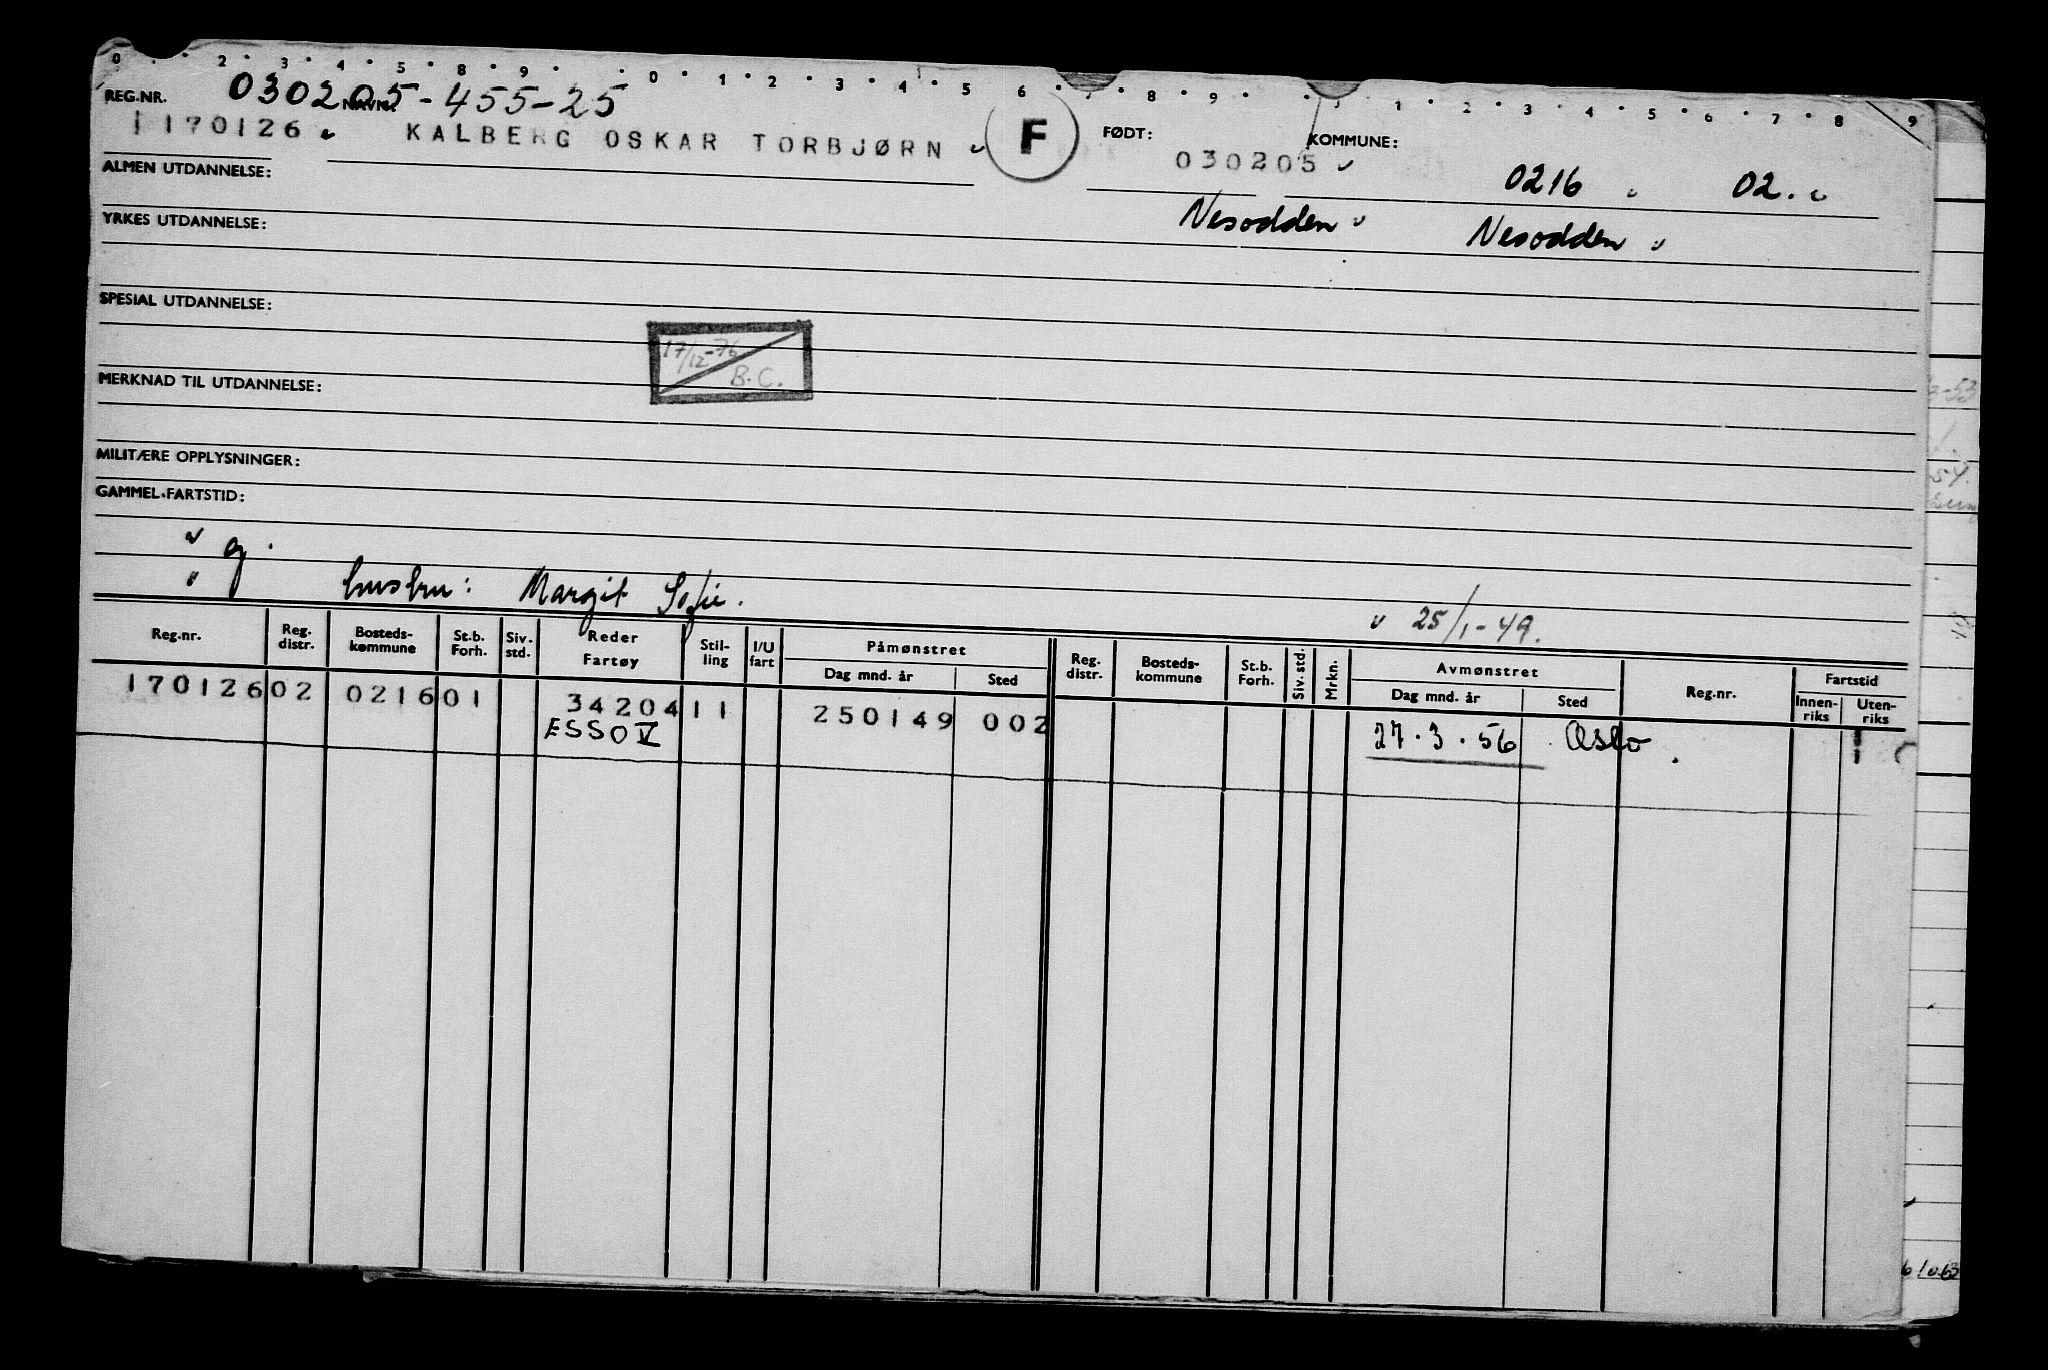 0 · · 2 · 3 · 4 · 5 · 8 · 9 · · 0 · 1 · 2 · 3 · 4 · 5 6 · 7 · 8 · 9 · · 1 · 2 · 3 · 4 · 5 · 6 · 7 · 8 · 9
REG.NR. 030205-455-25 NAVN:
1170126 KALBERG OSKAR TORBJØRN F FØDT: 030205 KOMMUNE:
0216 02.
ALMEN UTDANNELSE:
Nesodden Nesodden
YRKES UTDANNELSE:
SPESIAL UTDANNELSE:
17/12-76
B.C.
MERKNAD TIL UTDANNELSE:
MILITÆRE OPPLYSNINGER:
GAMMEL FARTSTID:
g.
hustru: Margit Sofie.
25/1-49.
Reg.nr. Reg. distr. Bosteds-kommune St.b. Forh. Siv. std. Reder Fartøy Stil-ling I/U fart Påmønstret Dag mnd. år Sted Reg. distr. Bosteds-kommune St.b. Forh. Siv. std. Mrkn. Avmønstret Dag mnd. år Sted Reg.nr. Fartstid Innen-riks Uten-riks
170126 02 0216 01 34204 11 250149 002
ESSO V 27.3.56 Oslo.